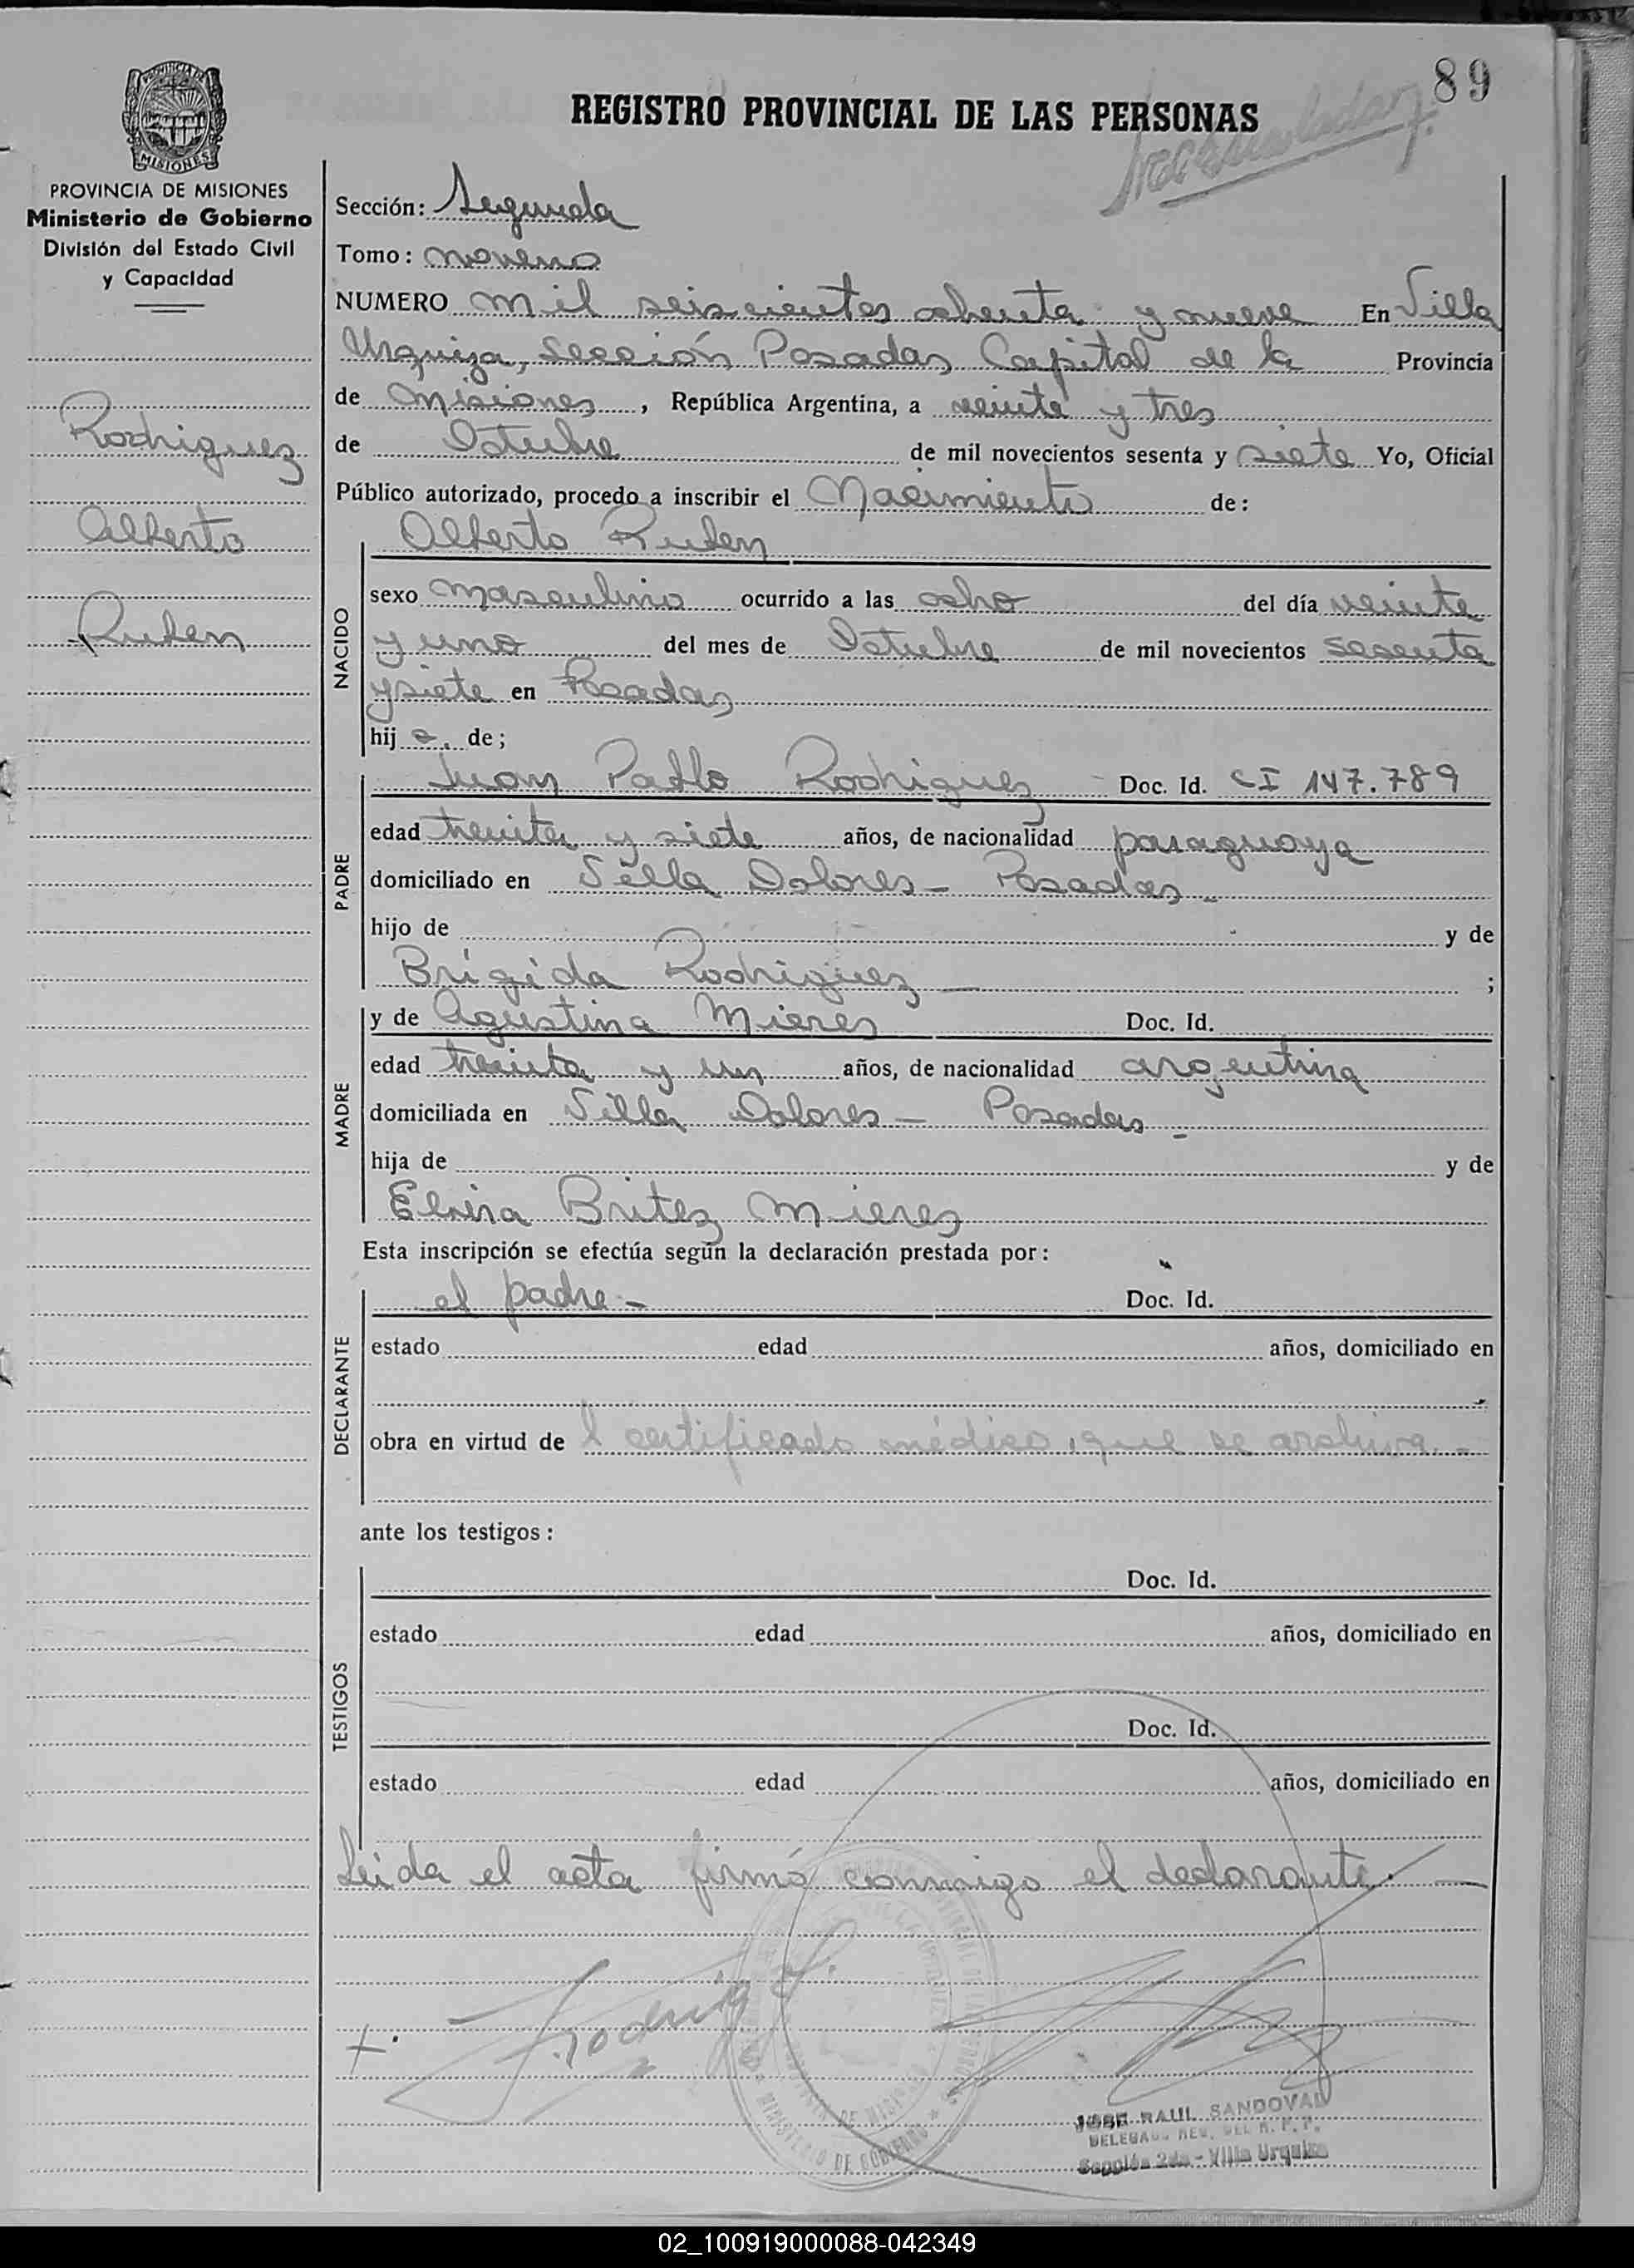 89
REGISTRO PROVINCIAL DE LAS PERSONAS
MISIONES
PROVINCIA DE MISIONES
Ministerio de Gobierno
División del Estado Civil
y Capacidad
Rodriguez
Alberto
Ruben
Sección: Segunda
Tomo: noveno
NUMERO mil seiscientos ochenta y nueve En Villa
Urquiza, Sección Posadas Capital de la Provincia
de Misiones, República Argentina, a veinte y tres
de Octubre de mil novecientos sesenta y siete Yo, Oficial
Público autorizado, procedo a inscribir el Nacimiento de:
Alberto Ruben
NACIDO
sexo masculino ocurrido a las ocho del día veinte
y uno del mes de Octubre de mil novecientos sesenta
y siete en Posadas
hij o. de;
Juan Pablo Rodriguez - Doc. Id. CI 147.789
PADRE
edad treinta y siete años, de nacionalidad paraguaya
domiciliado en Villa Dolores - Posadas -
hijo de y de
Brigida Rodriguez — ;
y de Agustina Mieres Doc. Id.
MADRE
edad treinta y un años, de nacionalidad argentina
domiciliada en Villa Dolores - Posadas -
hija de y de
Elvira Britez Mieres
Esta inscripción se efectúa según la declaración prestada por:
el padre - Doc. Id.
DECLARANTE
estado edad años, domiciliado en
obra en virtud de l certificado médico, que se archiva. -
ante los testigos:
Doc. Id.
TESTIGOS
estado edad años, domiciliado en
Doc. Id.
estado edad años, domiciliado en
Leida el acta firmó conmigo el declarante. —
MINISTERIO DE GOBIERNO
JOSE RAUL SANDOVAL
Sección 2da - Villa Urquiza
02_100919000088-042349